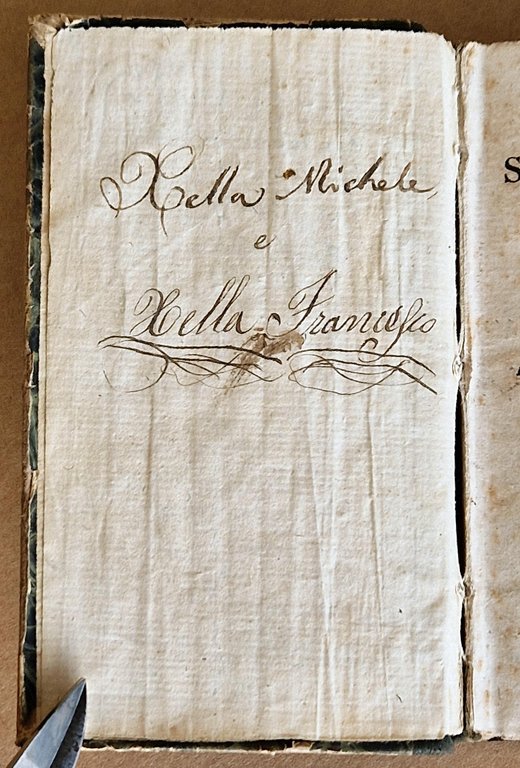 Xella Michele
e
Xella Francesco
S